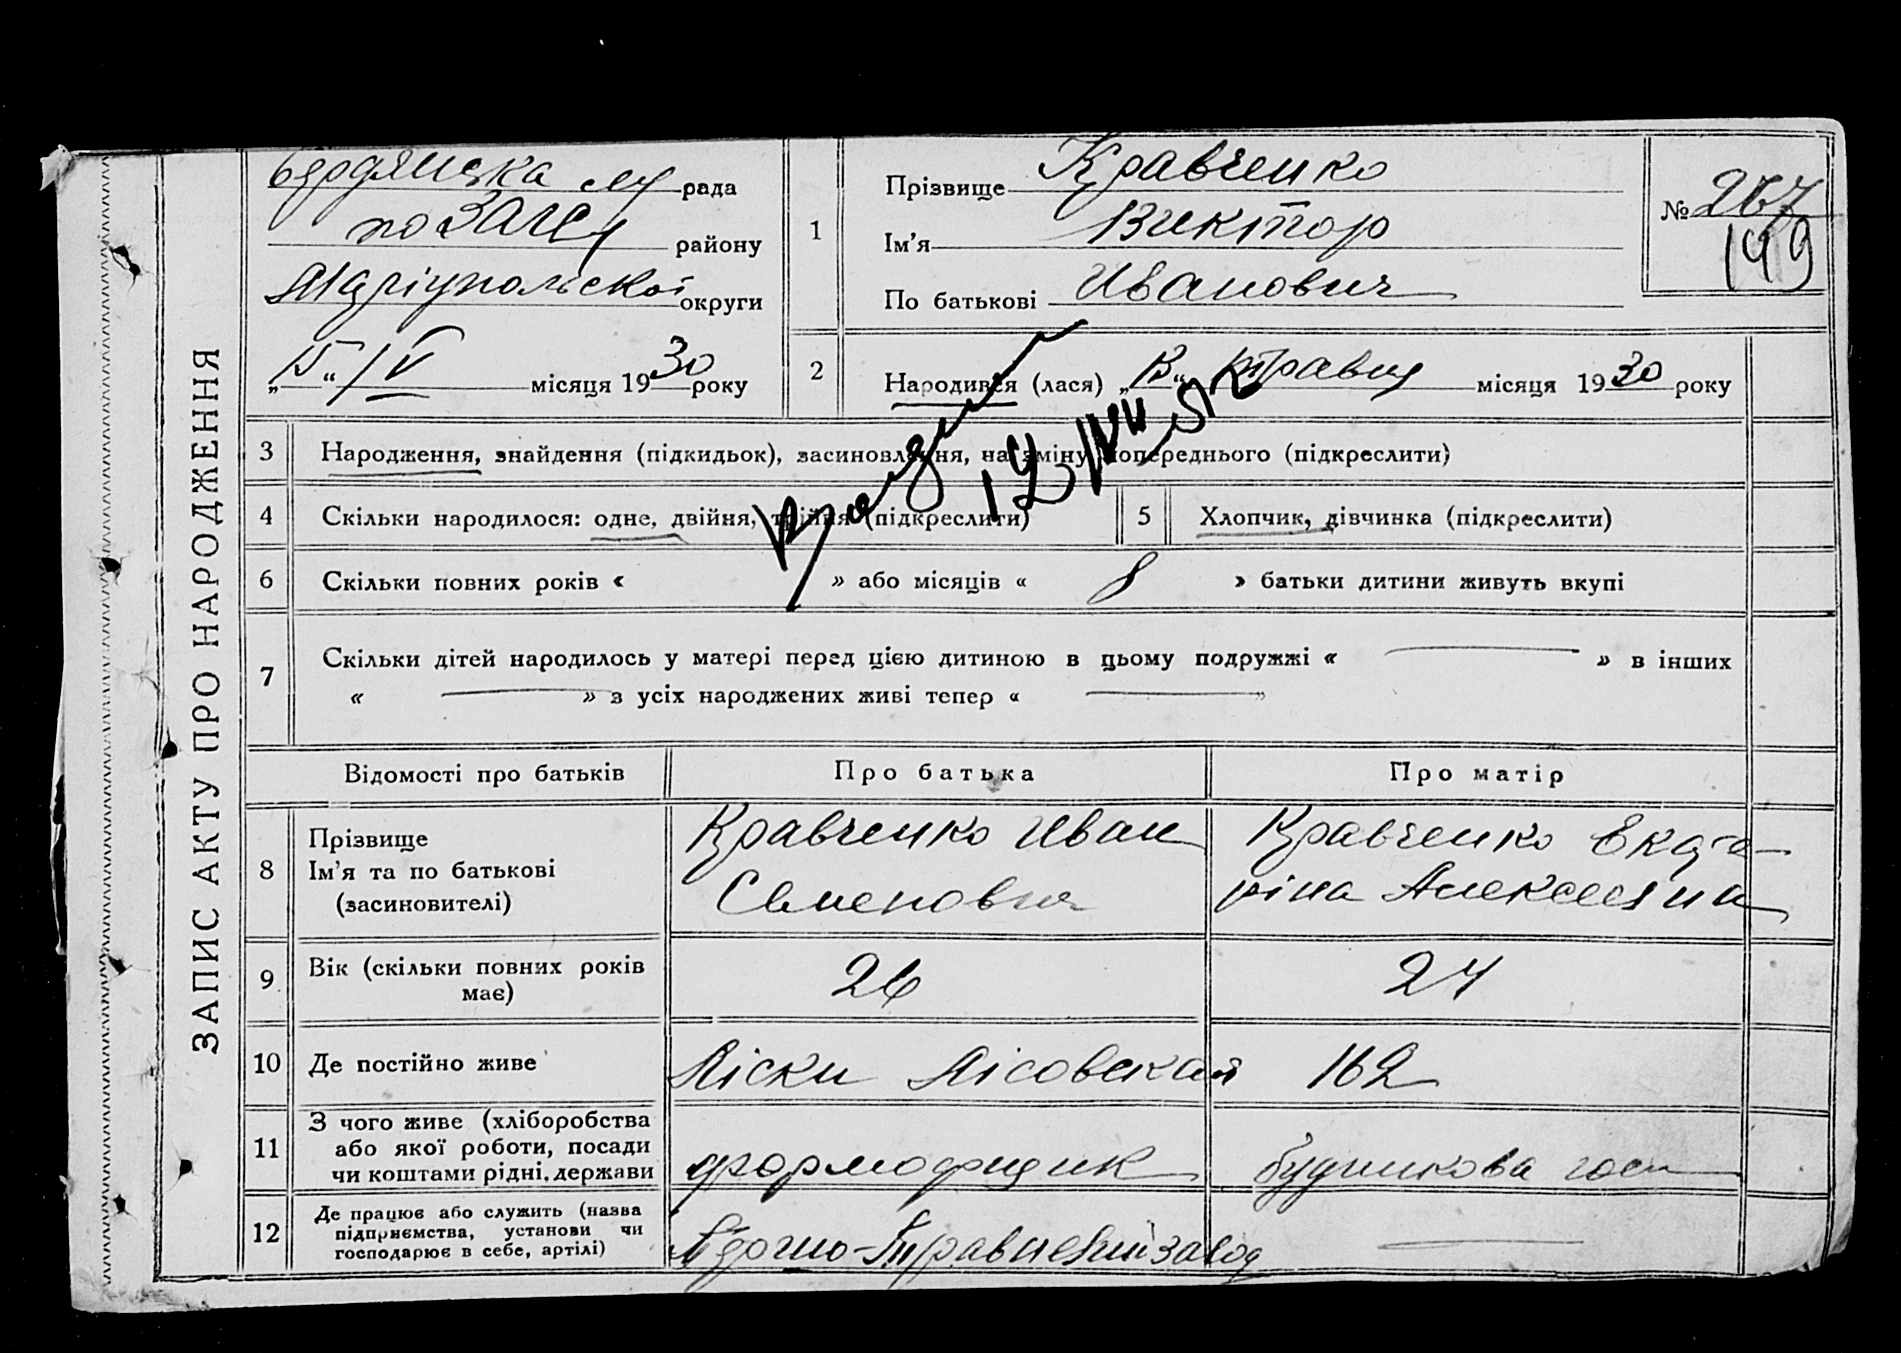 ЗАПИС АКТУ ПРО НАРОДЖЕННЯ
Бердянська рада
по ЗАГСу району
Маріупольской округи
„15“ / V місяця 1930 року
1
Прізвище Кравченко
Ім'я Виктор
По батькові Иванович
№ 267
199
2
Народився (лася) „13“ травня місяця 1930 року
3 Народження, знайдення (підкидьок), засиновлення, на зміну попереднього (підкреслити)
4 Скільки народилося: одне, двійня, трійня (підкреслити)
5 Хлопчик, дівчинка (підкреслити)
6 Скільки повних років « » або місяців « 8 » батьки дитини живуть вкупі
7 Скільки дітей народилось у матері перед цією дитиною в цьому подружжі « — » в інших
« — » з усіх народжених живі тепер « — »
Відомості про батьків Про батька Про матір
8 Прізвище
Ім'я та по батькові
(засиновителі)
Кравченко Иван
Семенович
Кравченко Екате-
ріна Алексеевна
9 Вік (скільки повних років
має)
26
24
10 Де постійно живе
Ліски Лісовская 162
11 З чого живе (хліборобства
або якої роботи, посади
чи коштами рідні, держави
формовщик
12 Де працює або служить (назва
підприємства, установи чи
господарює в себе, артілі)
завод
—